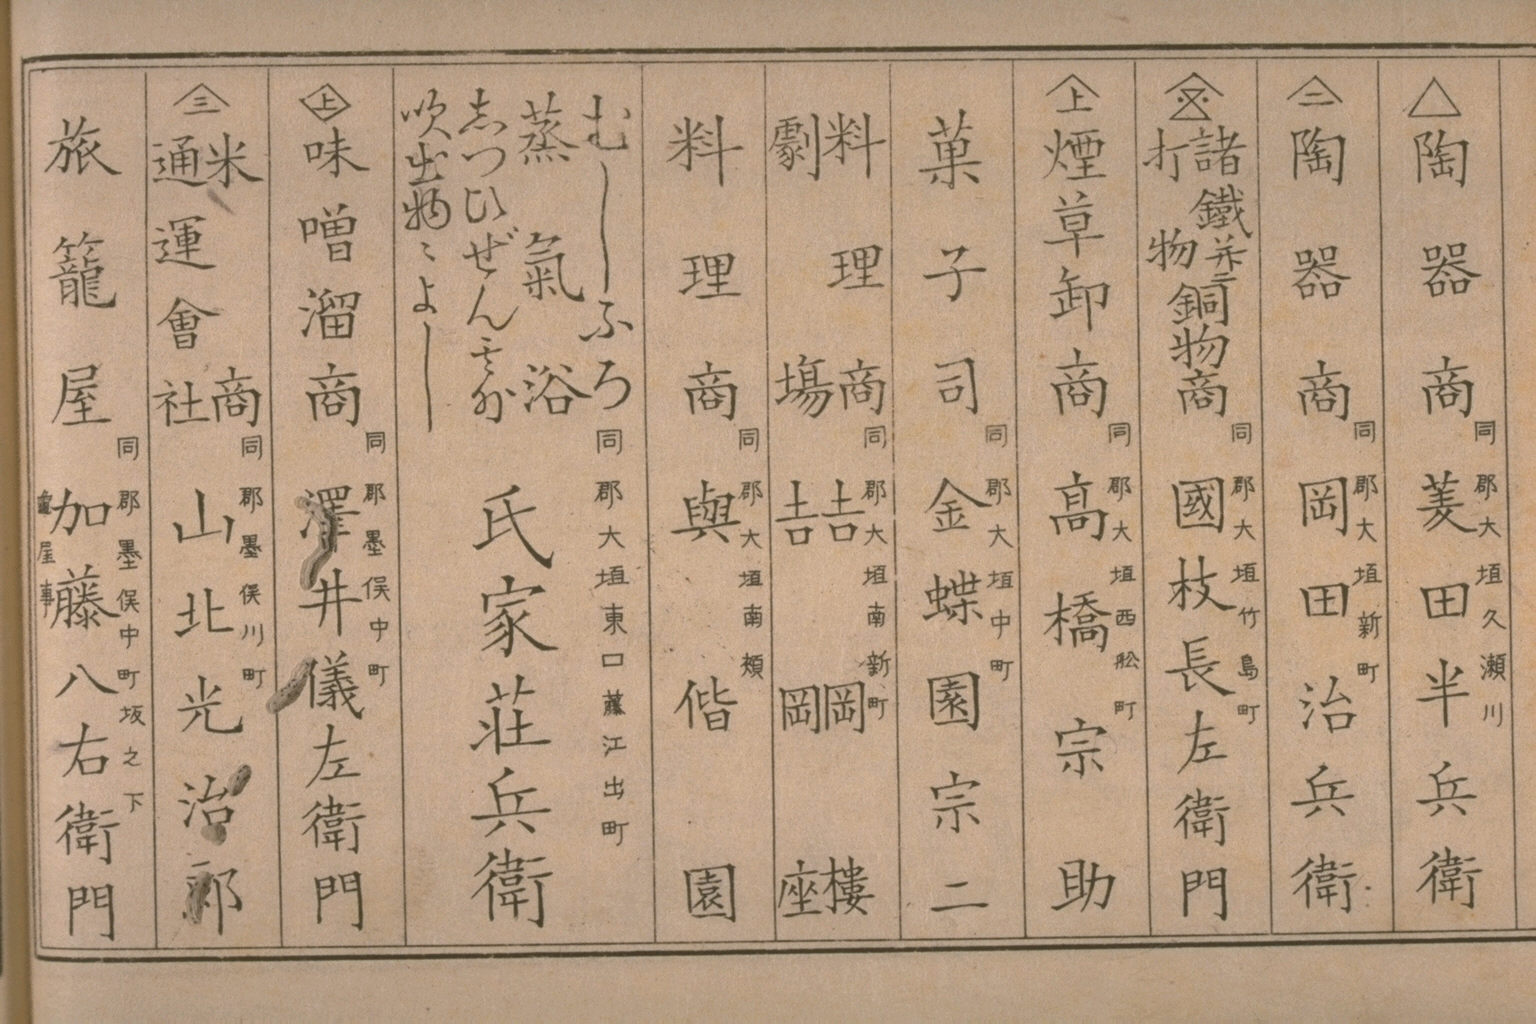 陶器商 同郡大垣久瀬川 菱田半兵衛
二 陶器商 同郡大垣新町 岡田治兵衛
諸鐵并ニ銅物商 打物 同郡大垣竹島町 國枝長左衛門
上 煙草卸商 同郡大垣西舩町 髙橋宗助
菓子司 同郡大垣中町 金蝶園宗二
料理商 同郡大垣南新町 吉岡樓
劇場 吉岡座
料理商 同郡大垣南頬 與偕園
むしふろ
蒸氣浴 同郡大垣東口藤江出町 氏家荘兵衛
志つひぜん
吹出物ニよし
上 味噌溜商 同郡墨俣中町 澤井儀左衛門
三 米商 同郡墨俣川町 山北光治郎
通運會社
旅籠屋 同郡墨俣中町坂之下 加藤八右衛門
龜屋事